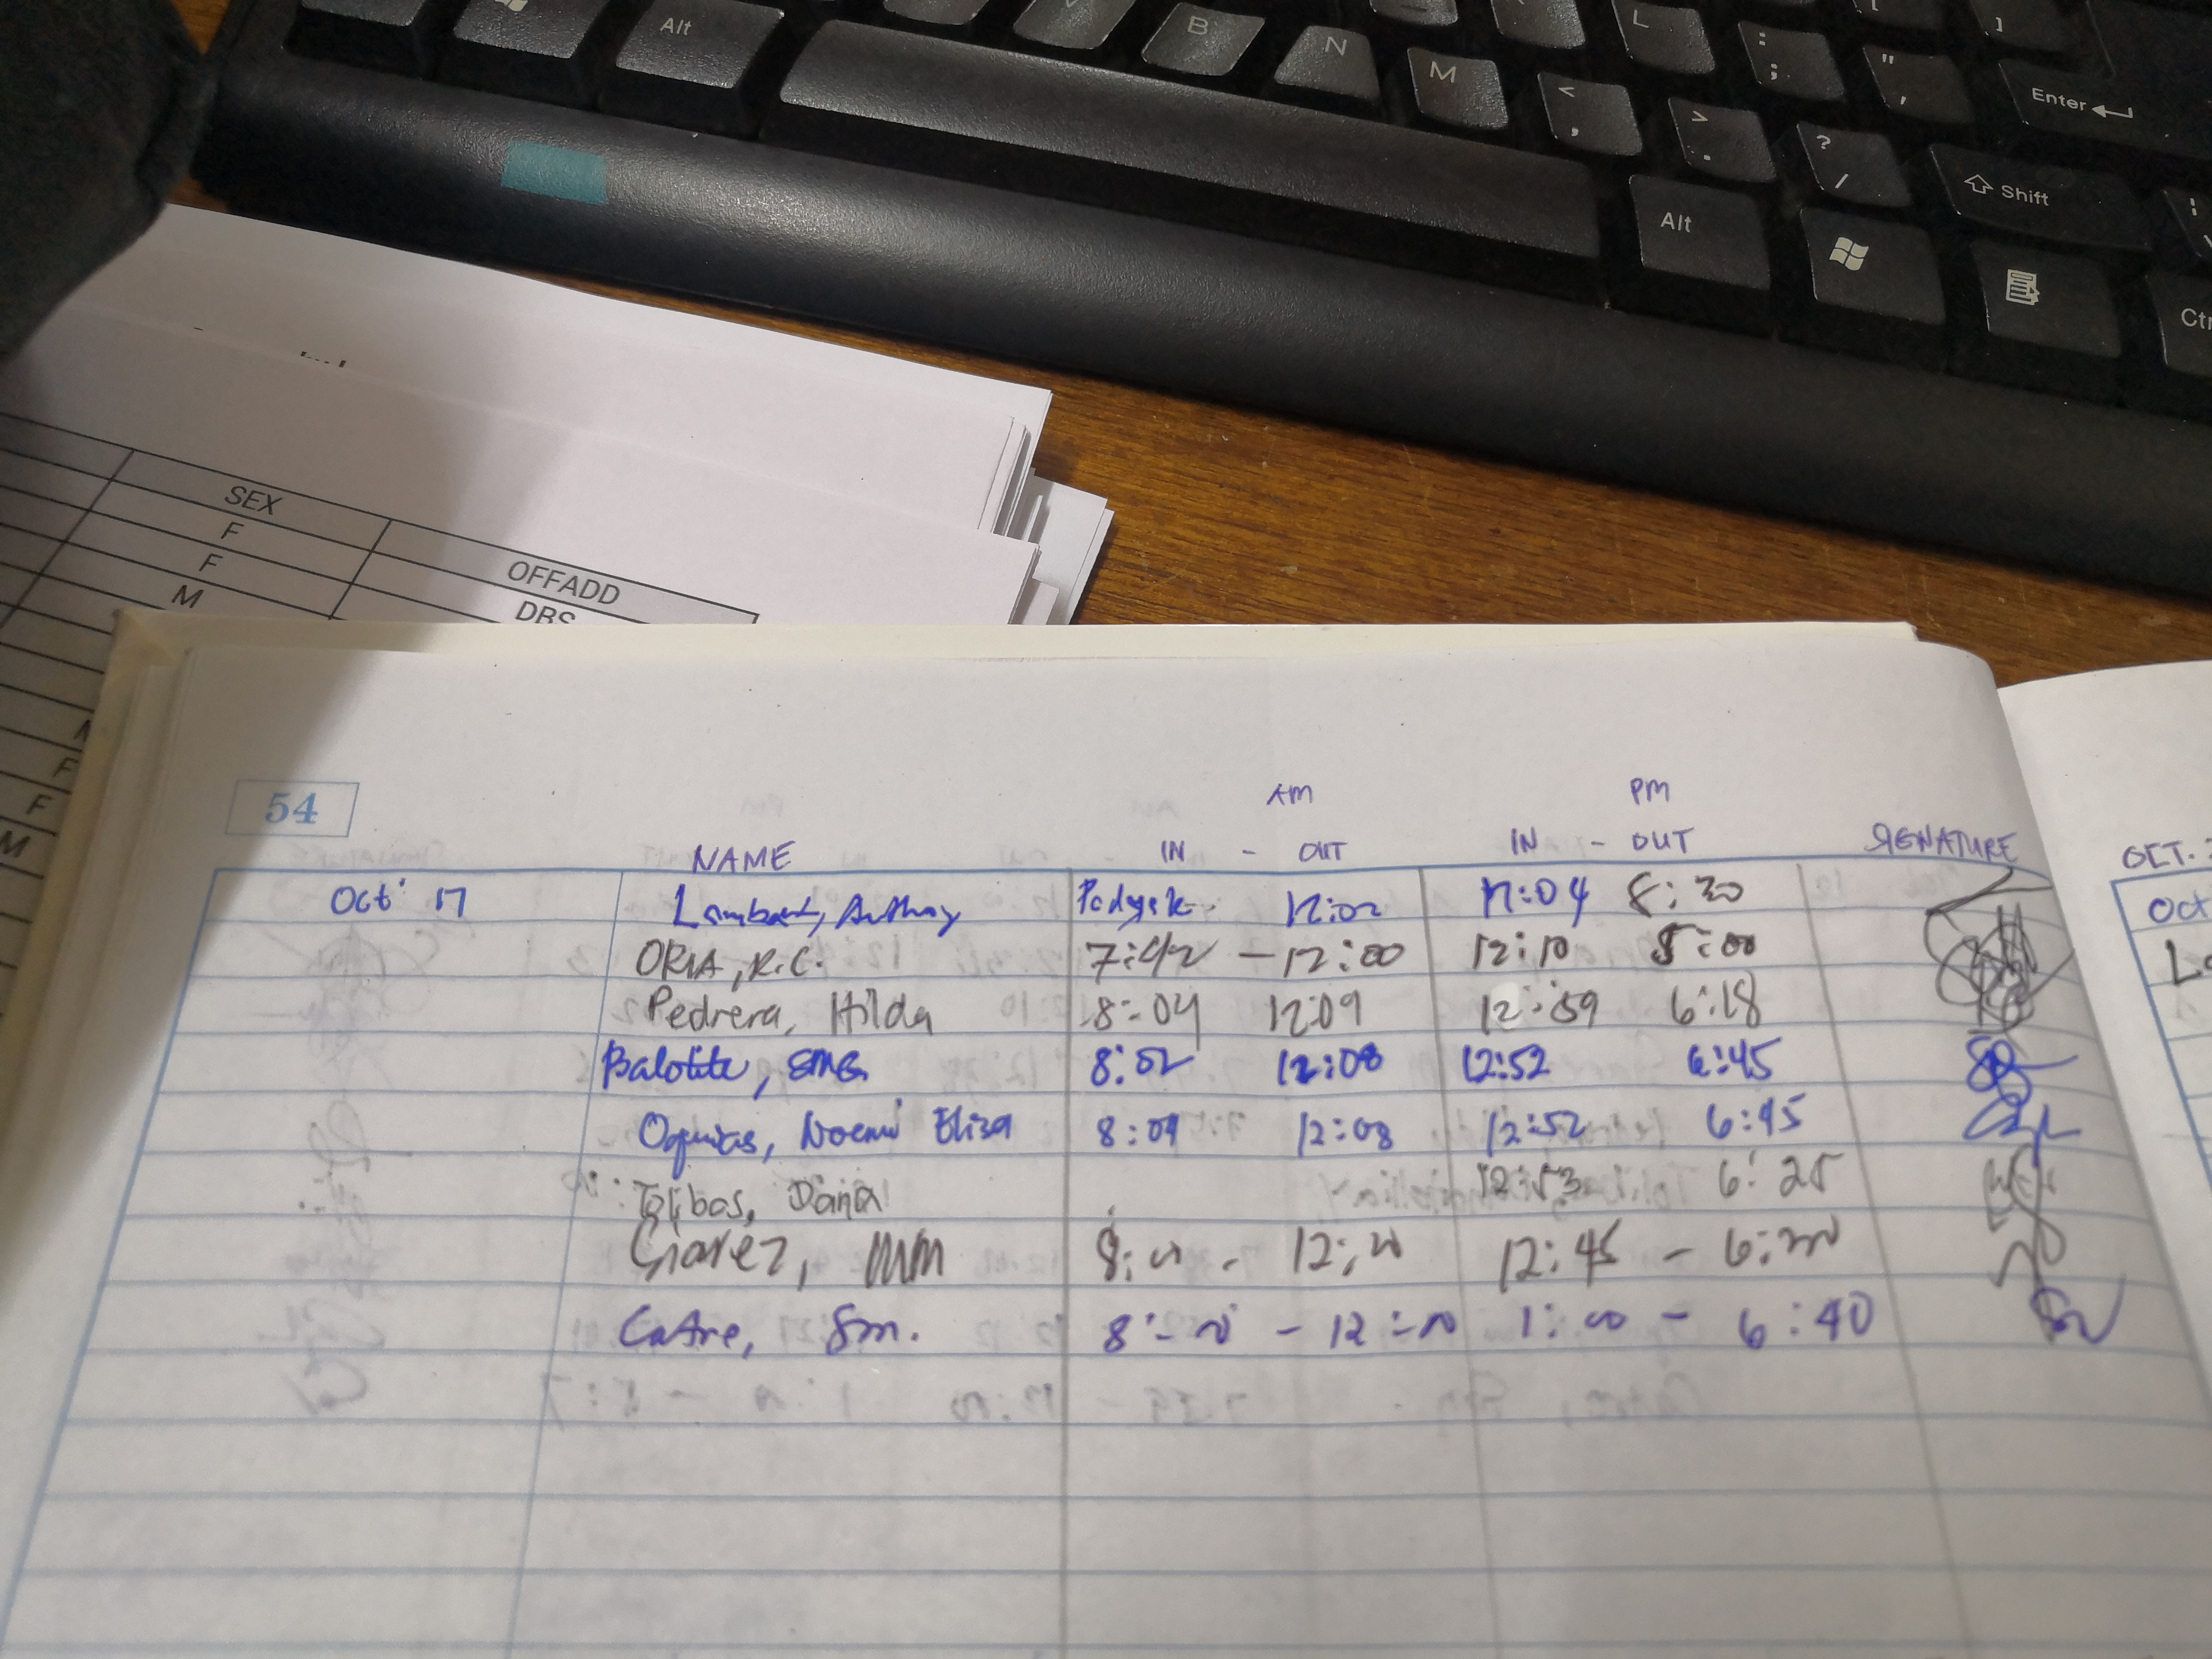 Alt B N M < , > . ? / L : ; " ' [ ] Enter
Alt Shift Ctr
SEX OFFADD
F DBS
F
M
F
F
M
54
AM PM
NAME IN - OUT IN - OUT SIGNATURE OCT.
Oct 17 Lambert, Anthony 12:02 12:04 8:30 Oct
ORIA, R.C. 7:42 - 12:00 12:10 5:00
Pedrera, Hilda 8:04 12:09 12:59 6:18
Balotite, SMG 8:02 12:08 12:52 6:45
Noemi Eliza 8:04 12:08 12:52 6:45
Tolibas, Dana 12:53 6:25
MM 12:45 - 6:30
Catre, Sm. 1:00 - 6:40